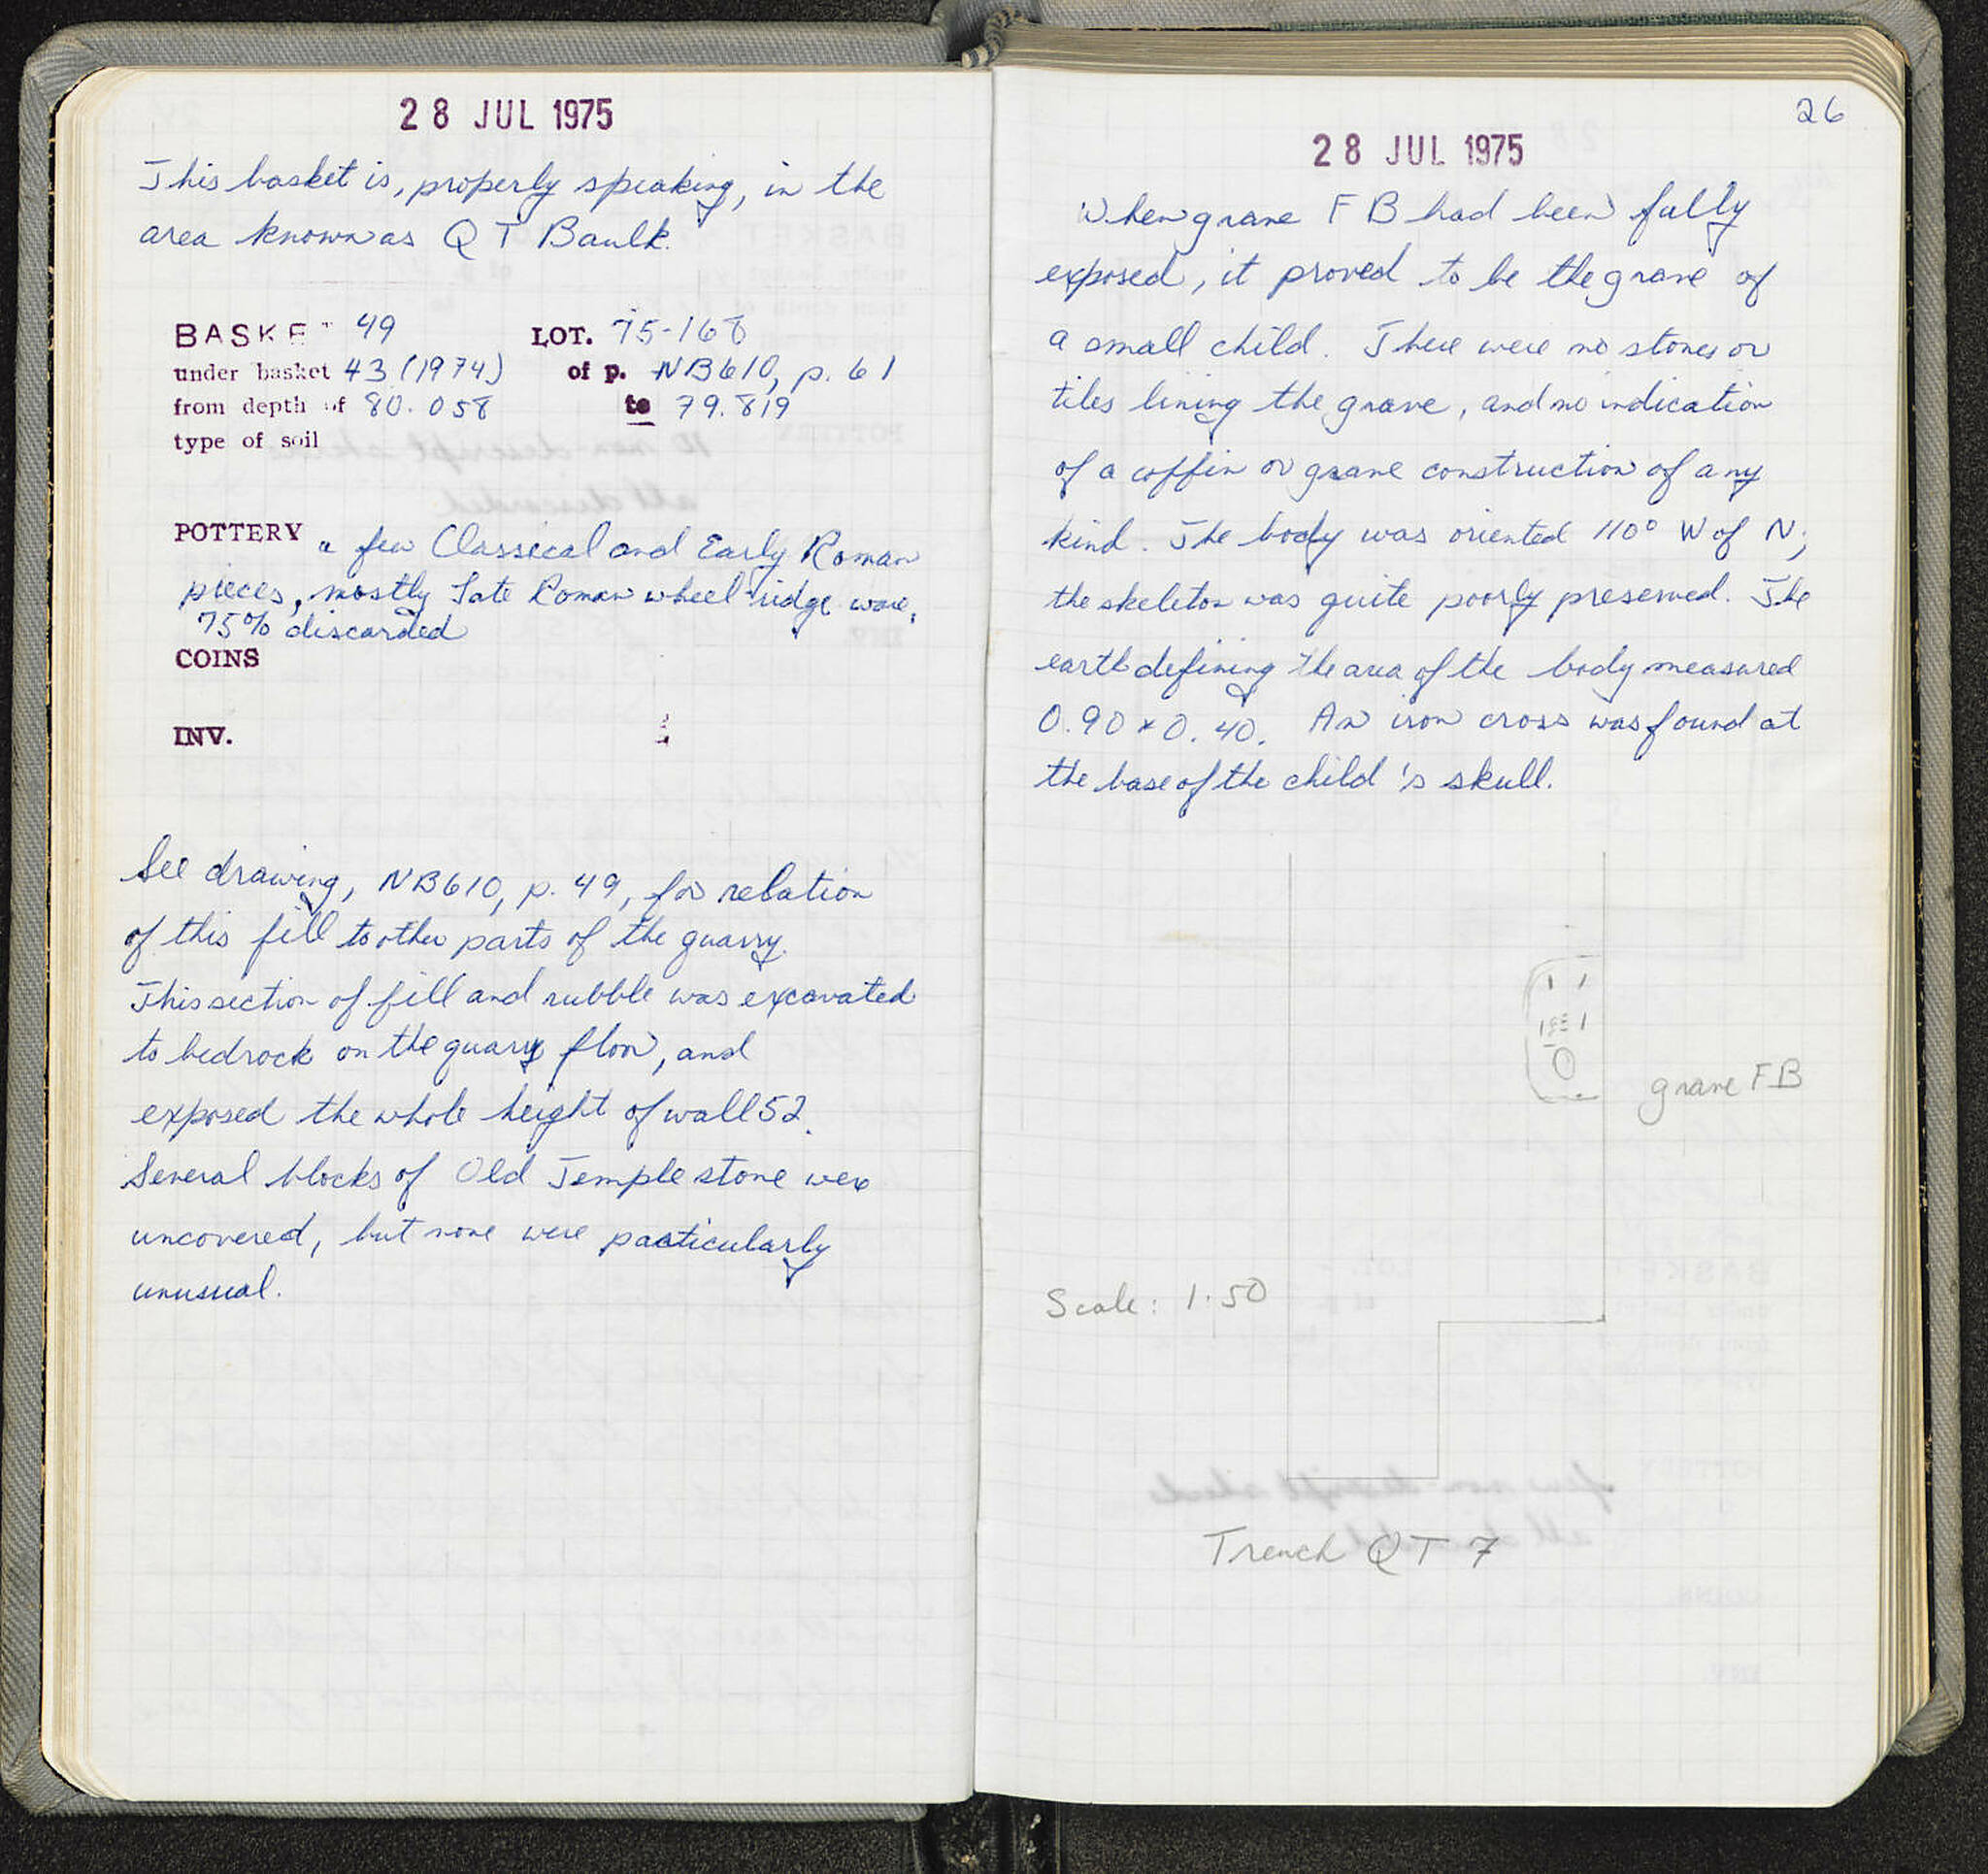 28 JUL 1975
This basket is, properly speaking, in the
area known as QT Baulk.
BASKET 49 LOT. 75-168
under basket 43 (1974) of p. NB610, p. 61
from depth of 80.058 to 79.819
type of soil
POTTERY a few Classical and Early Roman
pieces, mostly Late Roman wheel ridge ware,
75% discarded
COINS
INV.
See drawing, NB610, p. 49, for relation
of this fill to other parts of the quarry.
This section of fill and rubble was excavated
to bedrock on the quarry floor, and
exposed the whole height of wall 52.
Several blocks of Old Temple stone were
uncovered, but none were particularly
unusual.
26
28 JUL 1975
When grave FB had been fully
exposed, it proved to be the grave of
a small child. There were no stones or
tiles lining the grave, and no indication
of a coffin or grave construction of any
kind. The body was oriented 110° W of N;
the skeleton was quite poorly preserved. The
earth defining the area of the body measured
0.90 x 0.40. An iron cross was found at
the base of the child's skull.
grave FB
Scale: 1:50
Trench QT 7